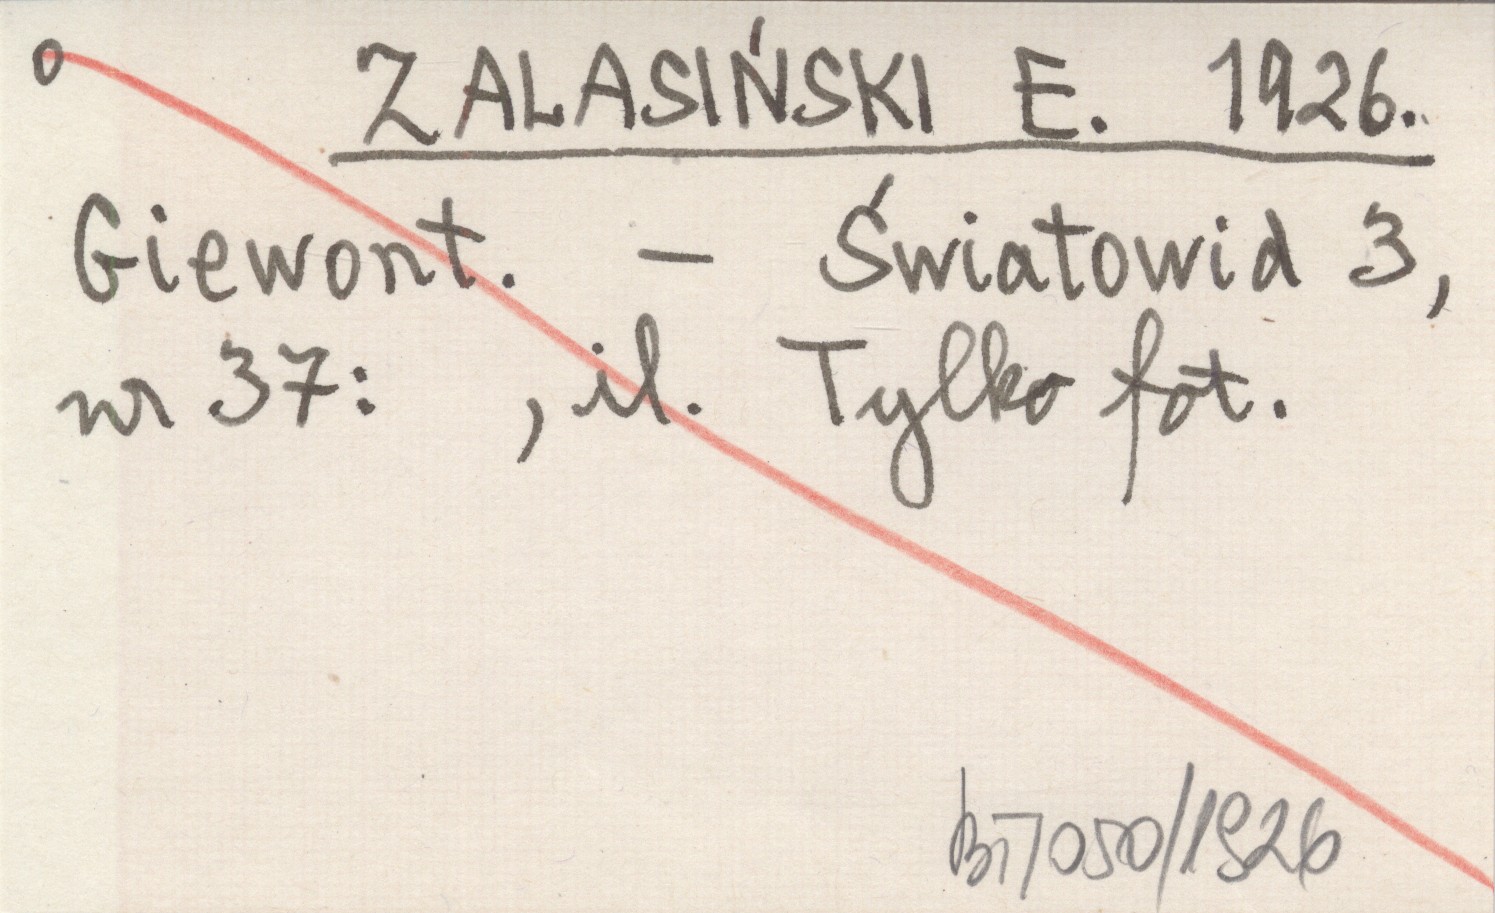 o ZALASIŃSKI E. 1926.
Giewont. – Światowid 3,
nr 37: , il. Tylko fot.
050/1926